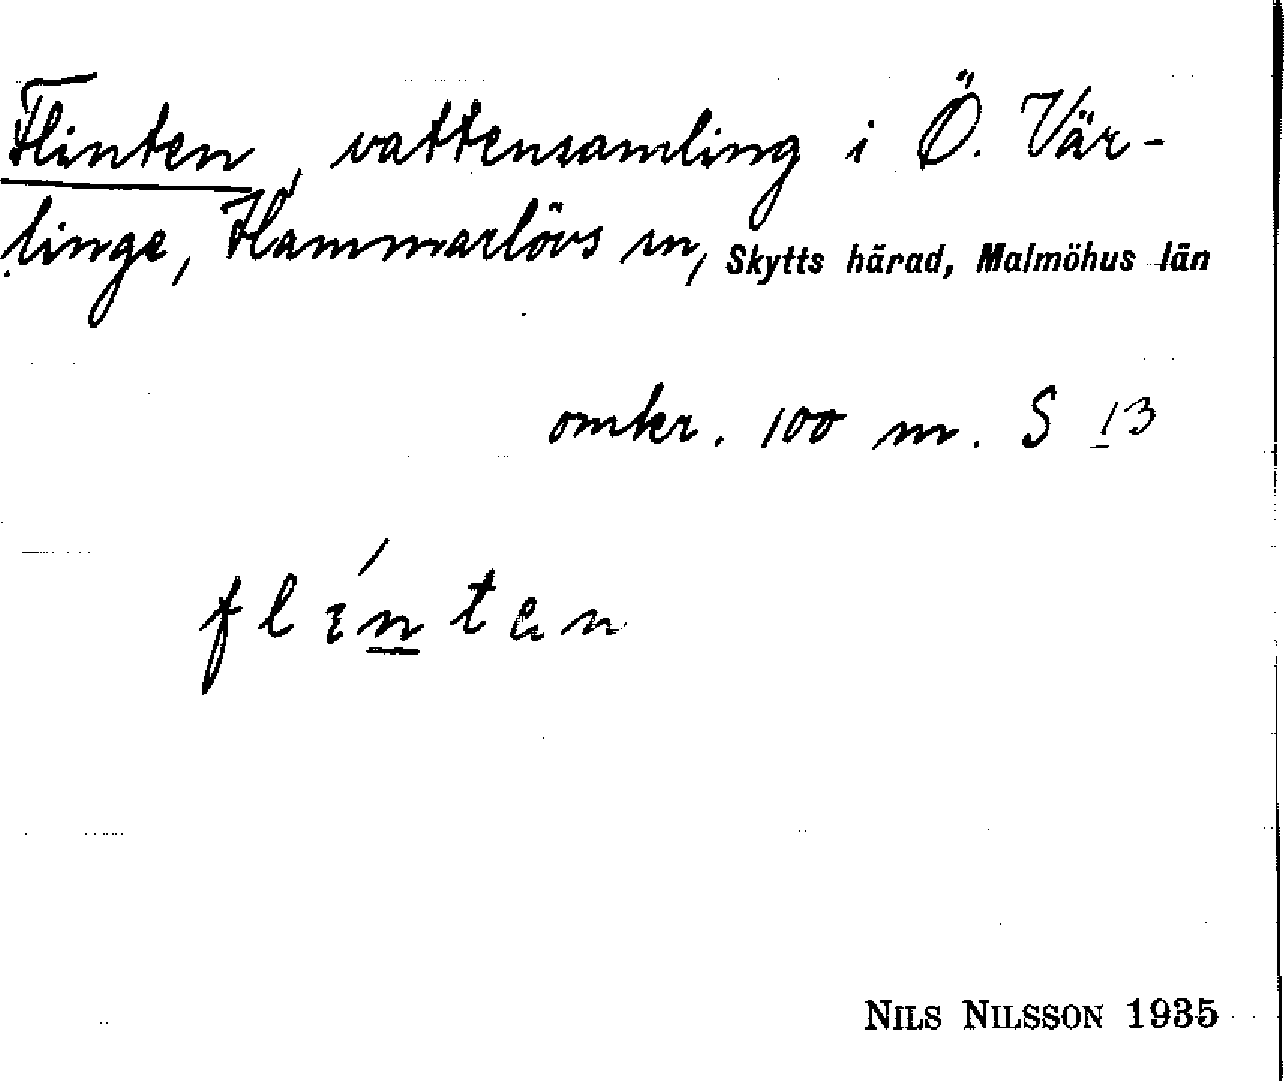 Flinten, vattensamling i Ö. Vär-
linge, Hammarlövs sn, Skytts härad, Malmöhus län
omkr. 100 m. S 13
flinten
NILS NILSSON 1935